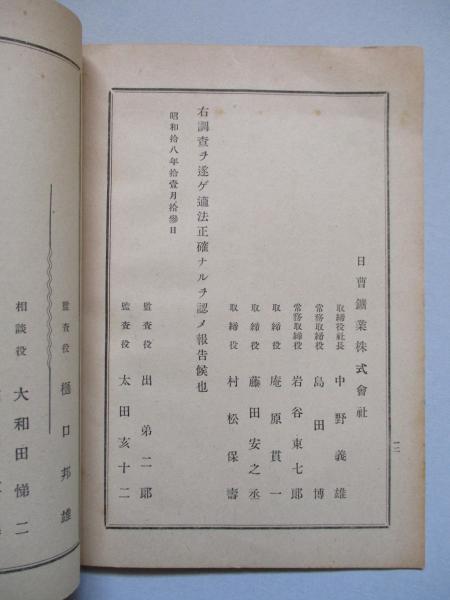 日曹鑛業株式會社
取締役社長 中野義雄
常務取締役 島田博
常務取締役 岩谷東七郎
取締役 庵原貫一
取締役 藤田安之丞
取締役 村松保壽
右調査ヲ遂ゲ適法正確ナルヲ認メ報告候也
昭和拾八年拾壹月拾參日
監査役 出弟二郎
監査役 太田亥十二
一二
監査役 樋口邦雄
相談役 大和田悌二